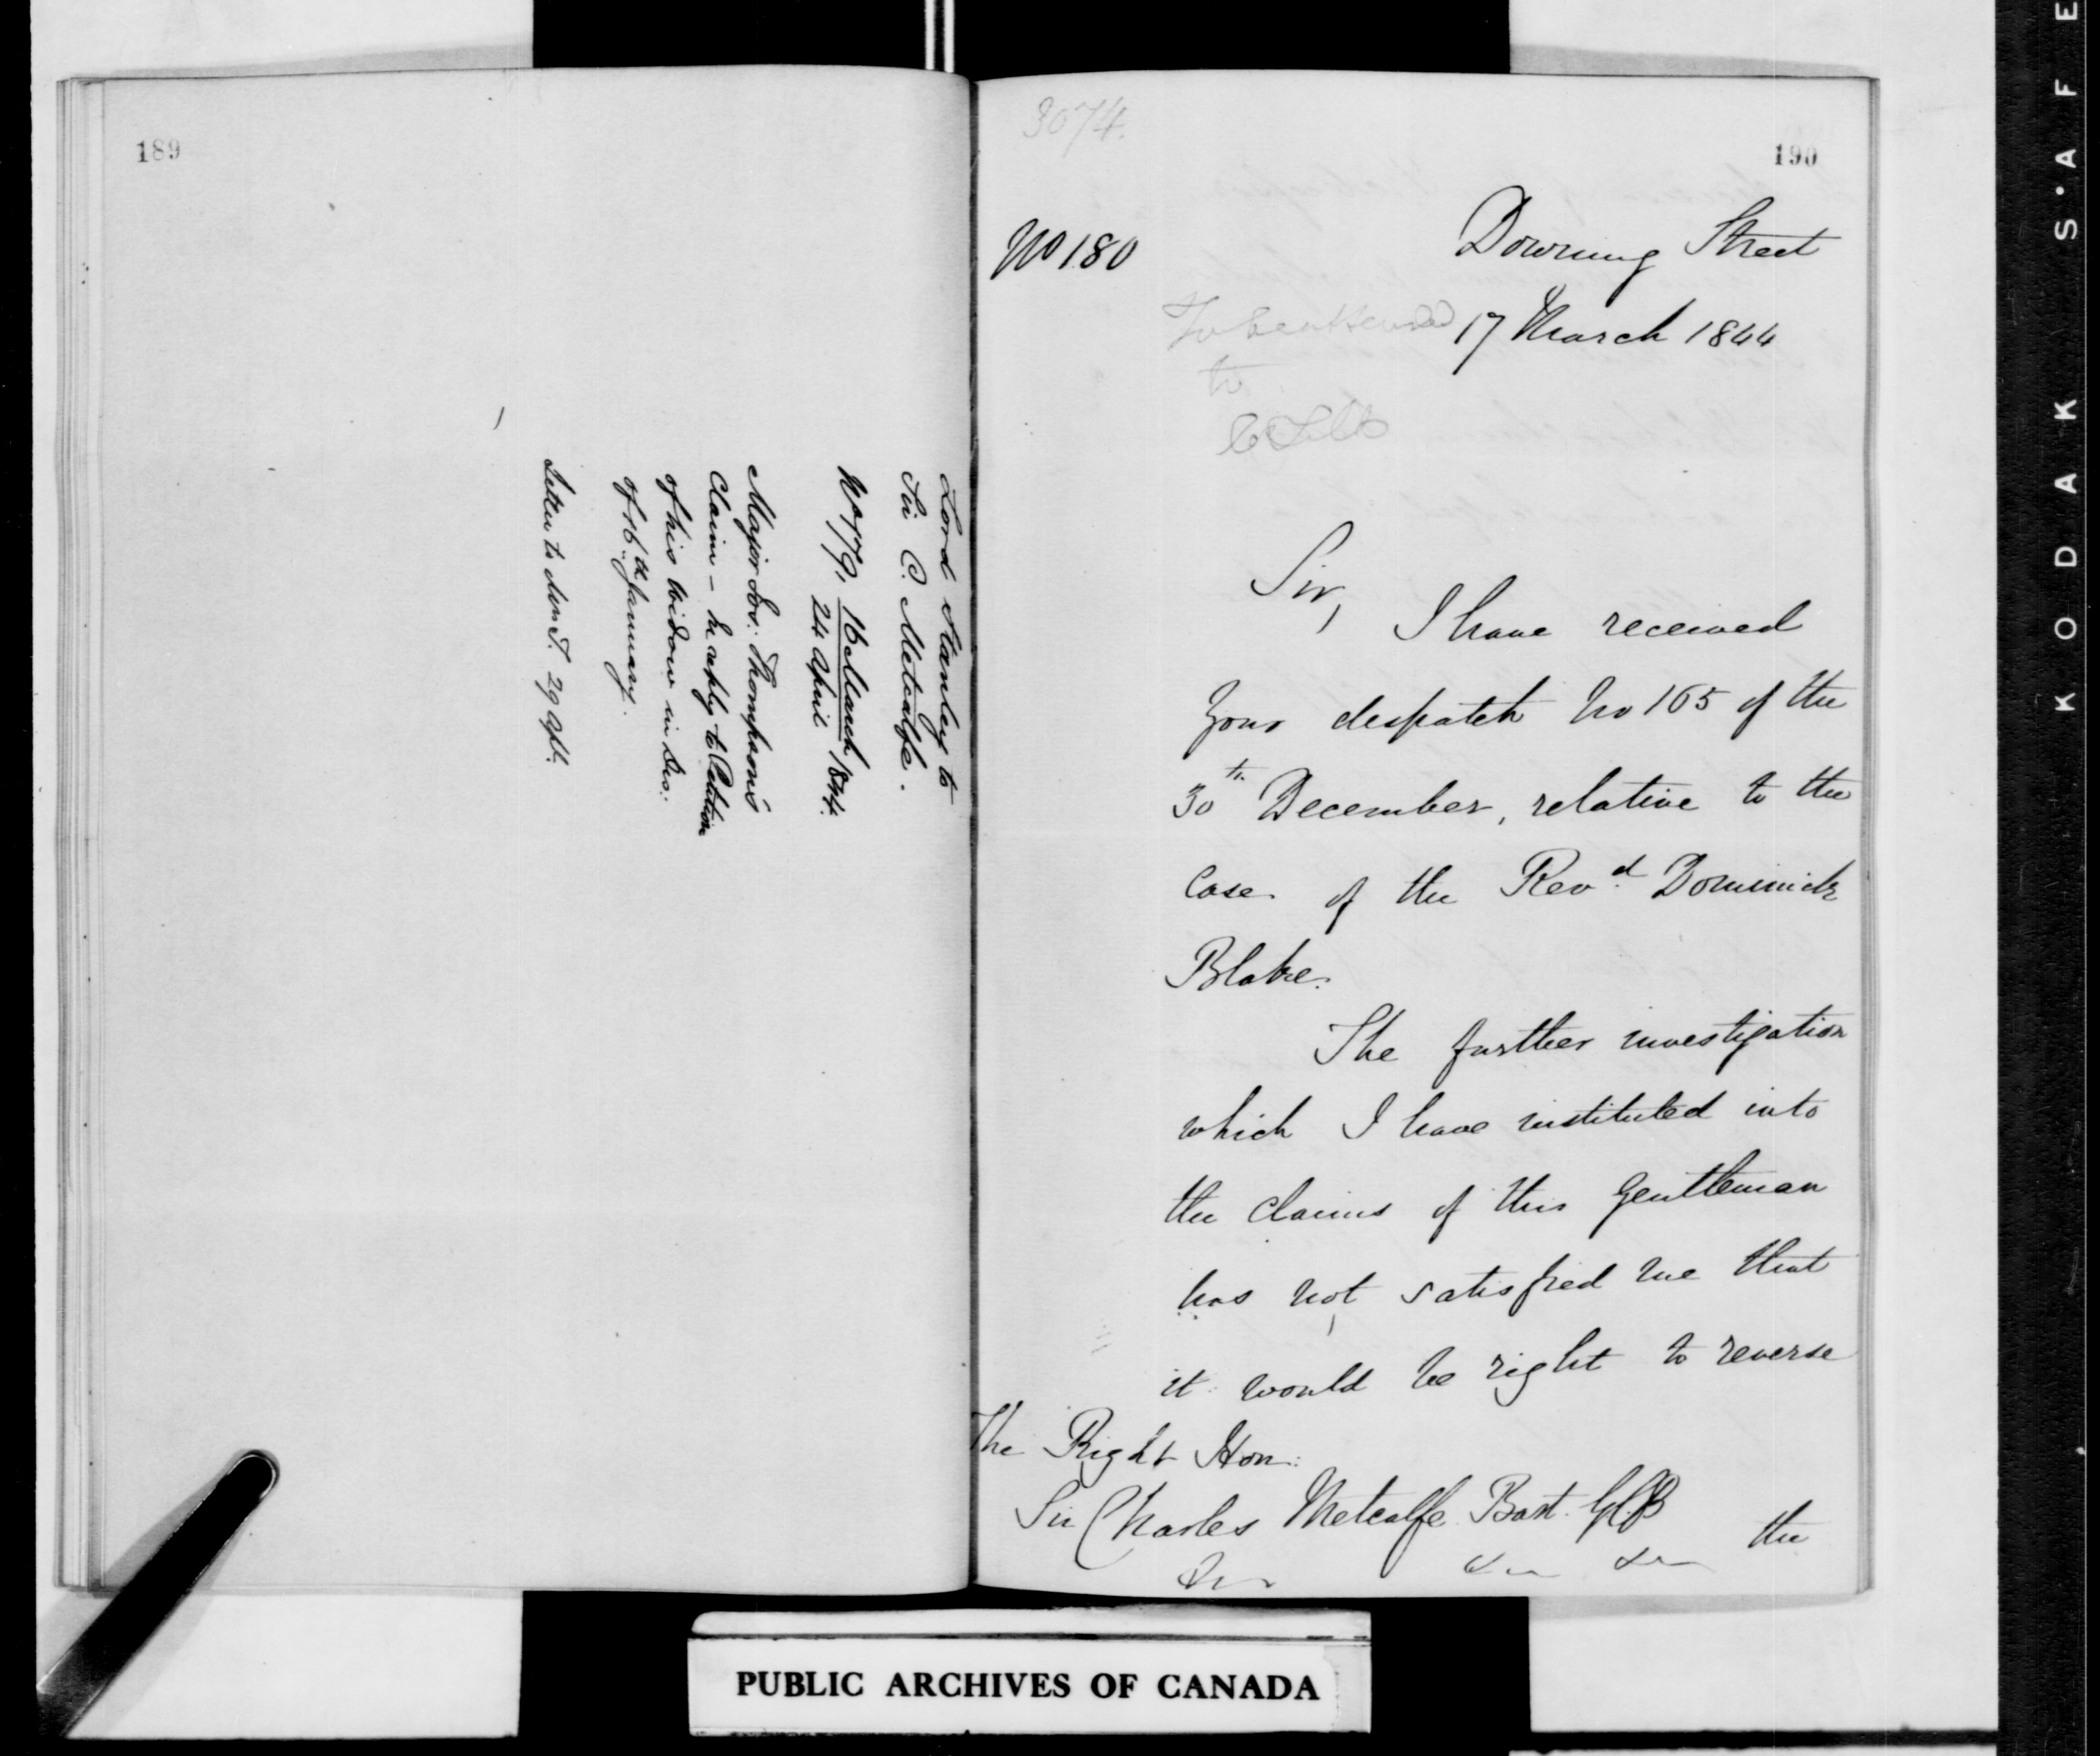 189
Lord Stanley to
Sir C. Metcalfe.
No 179, 16 March 1844.
24 April
Major Gov: Thompson's
Claim – In reply to Petition
of his Widow in Des:
of 16th January.
Letter to Mrs T. 29 Apl.
3074.
190
No 180
Downing Street
To be attended
17 March 1844
to
Sir,
I have received
Your despatch No 165 of the
30th December, relative to the
Case of the Revd Dominick
Blake.
The further investigation
which I have instituted into
the Claims of this Gentleman
has not satisfied me that
it would be right to reverse
The Right Hon:
Sir Charles Metcalfe Bart. GCB
the
PUBLIC ARCHIVES OF CANADA
KODAK S·AFE